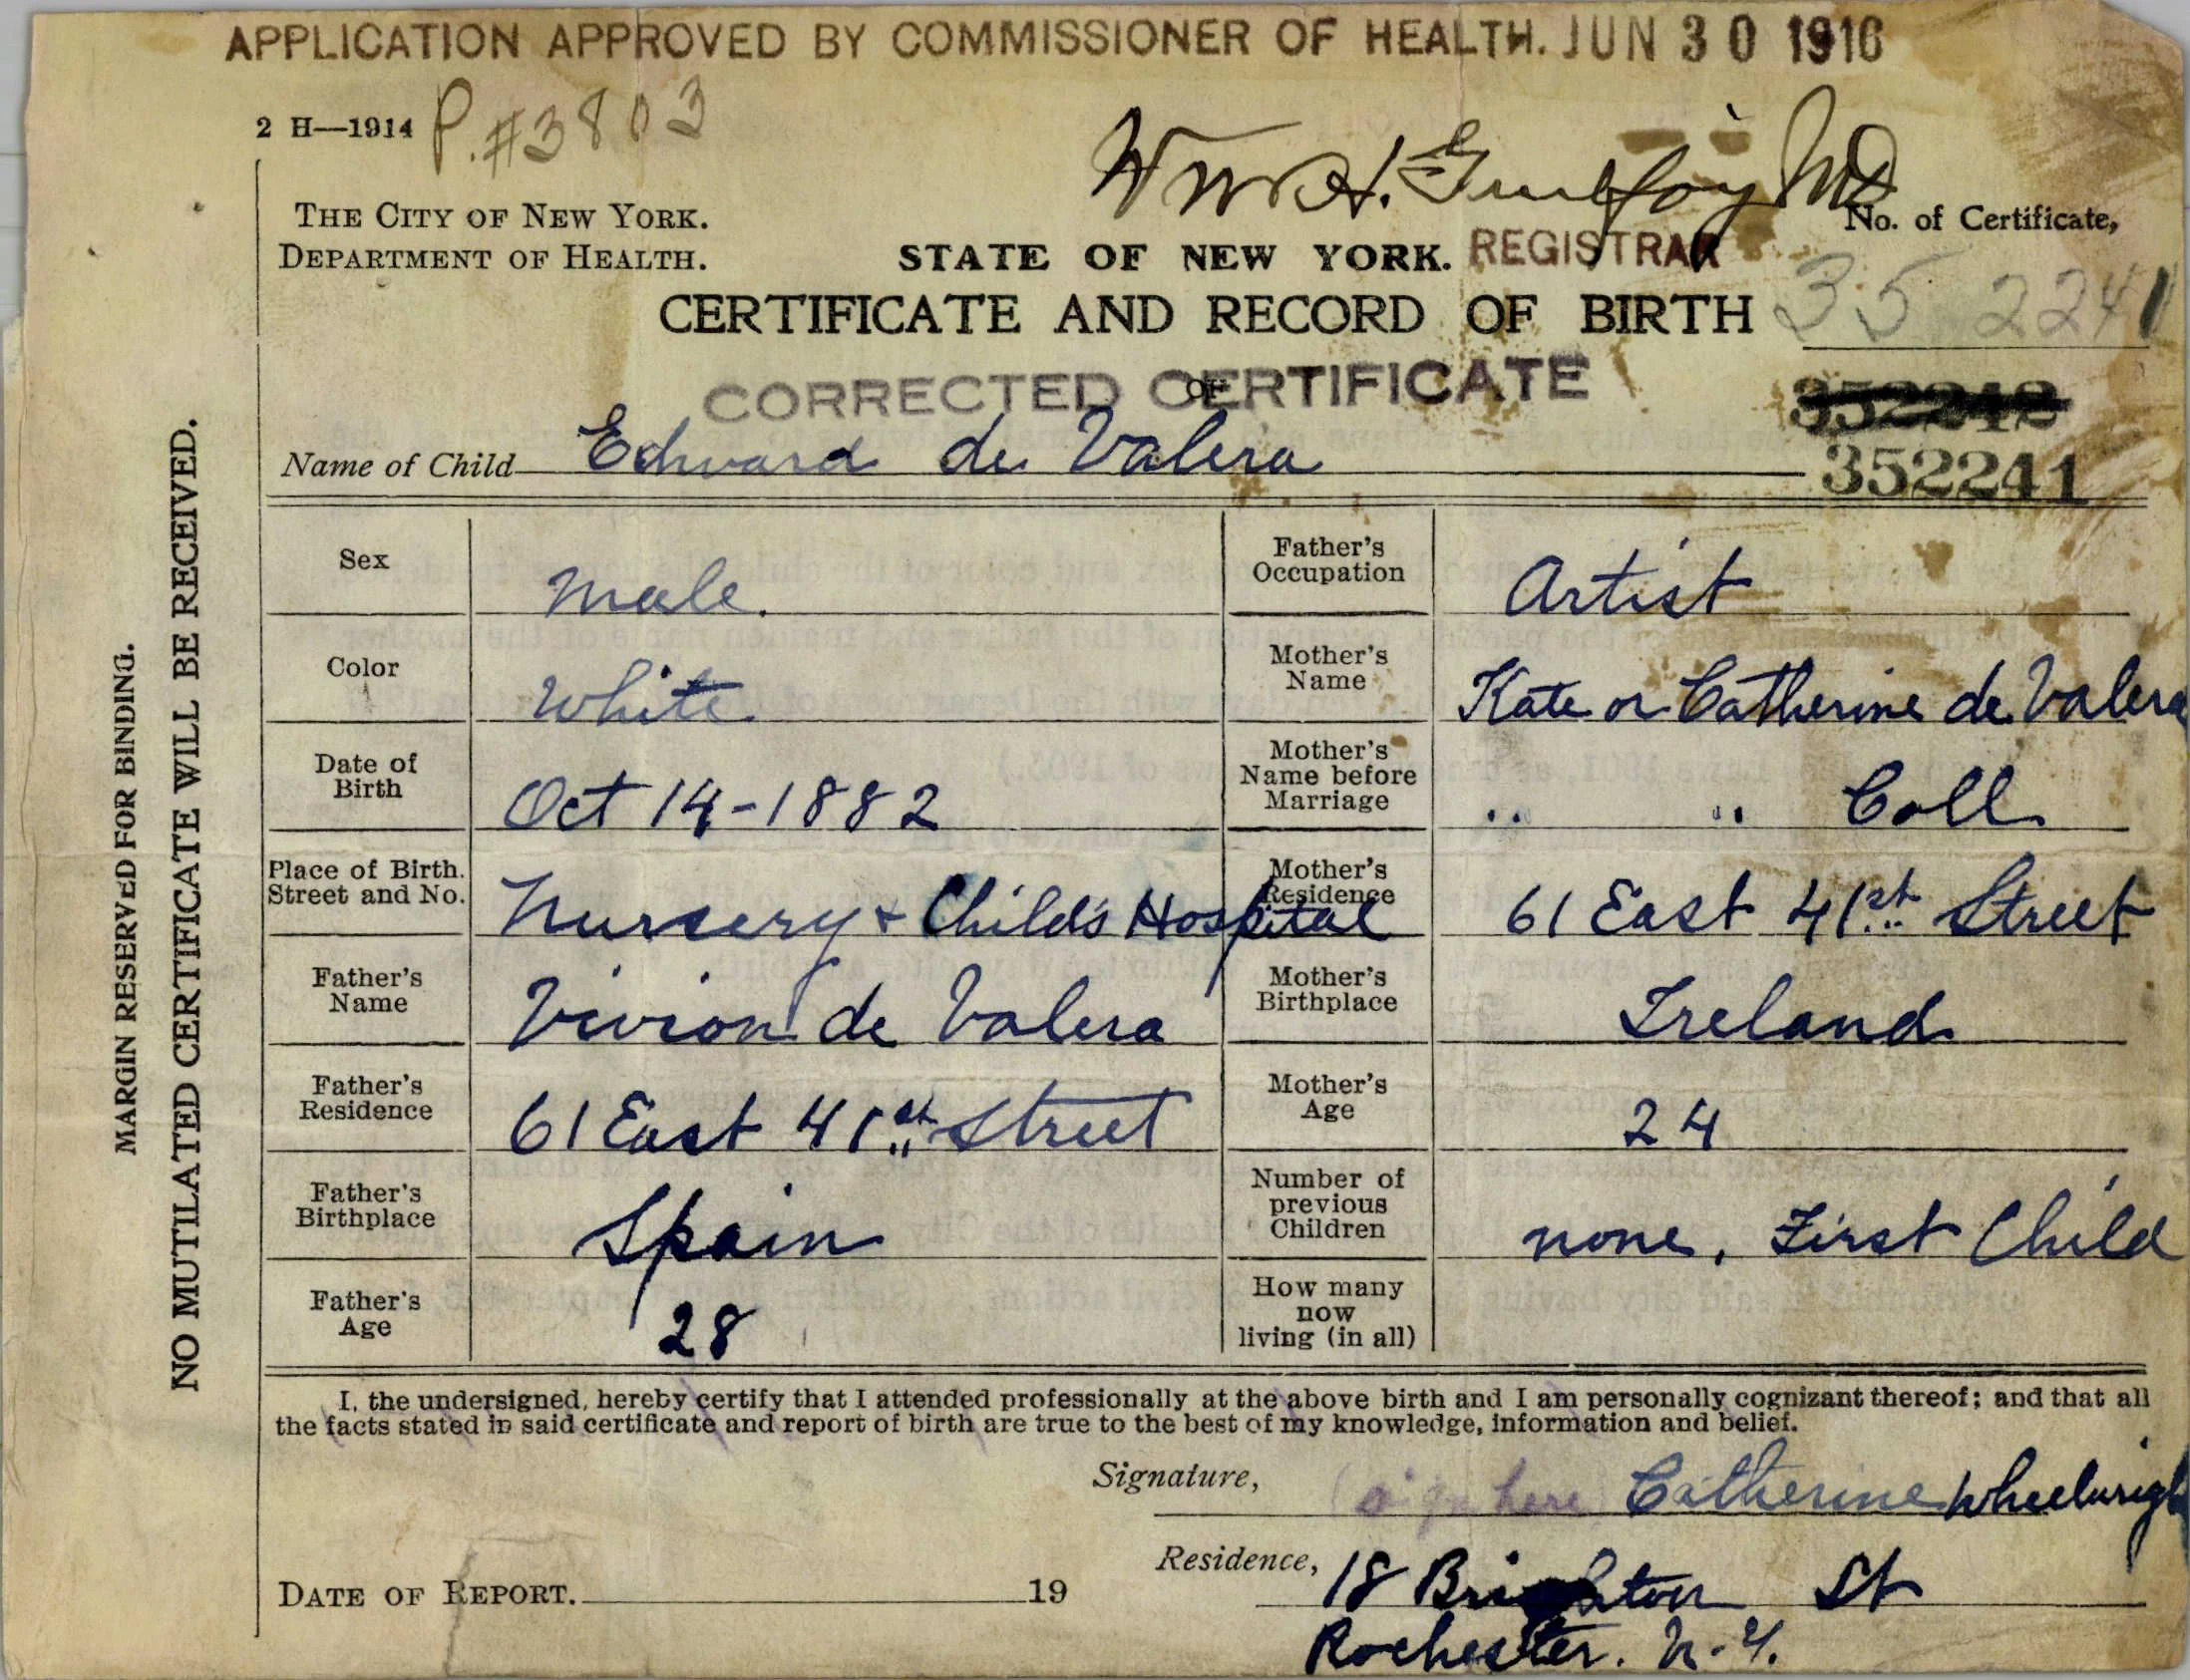 APPLICATION APPROVED BY COMMISSIONER OF HEALTH. JUN 30 1916
2 H—1914 P. #3803
Wm H. Guilfoy MD
THE CITY OF NEW YORK.
DEPARTMENT OF HEALTH.
STATE OF NEW YORK. REGISTRAR
No. of Certificate,
CERTIFICATE AND RECORD OF BIRTH
35 2241
CORRECTED CERTIFICATE
OF
352242
Name of Child Edward de Valera
352241
Sex Male.
Father's Occupation Artist
Color White
Mother's Name Kate or Catherine de Valera
Date of Birth Oct 14-1882
Mother's Name before Marriage " " Coll
Place of Birth. Street and No. Nursery + Child's Hospital
Mother's Residence 61 East 41st Street
Father's Name Vivion de Valera
Mother's Birthplace Ireland
Father's Residence 61 East 41st Street
Mother's Age 24
Father's Birthplace Spain
Number of previous Children none, First Child
Father's Age 28
How many now living (in all)
I, the undersigned, hereby certify that I attended professionally at the above birth and I am personally cognizant thereof; and that all
the facts stated in said certificate and report of birth are true to the best of my knowledge, information and belief.
Signature, (sign here) Catherine Wheelwright
Residence, 18 Brighton St
DATE OF REPORT. 19
Rochester. N.Y.
MARGIN RESERVED FOR BINDING.
NO MUTILATED CERTIFICATE WILL BE RECEIVED.